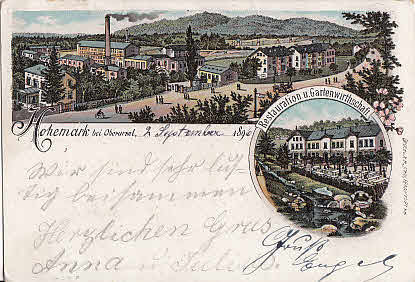 Hohemark bei Oberursel, 2 September 1896
Restauration u. Gartenwirthschaft
Wir sind sehr lu-
stig beisammen
Herzlichen Grus
Anna u. Julius
Gruß
Engel